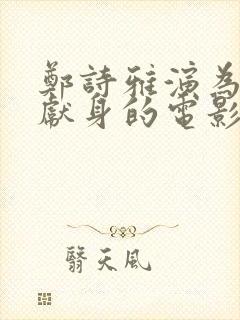 鄭詩雅演為
獻身的電影
翳天風